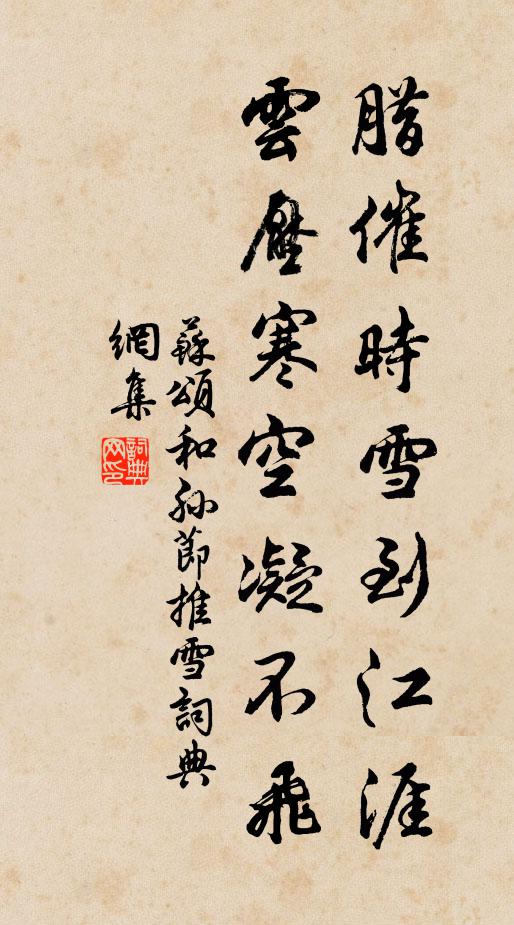 腊催時雪到江涯
雲壓寒空凝不飛
蘇頌和孙節推雪詞典
網集
詞典
网印